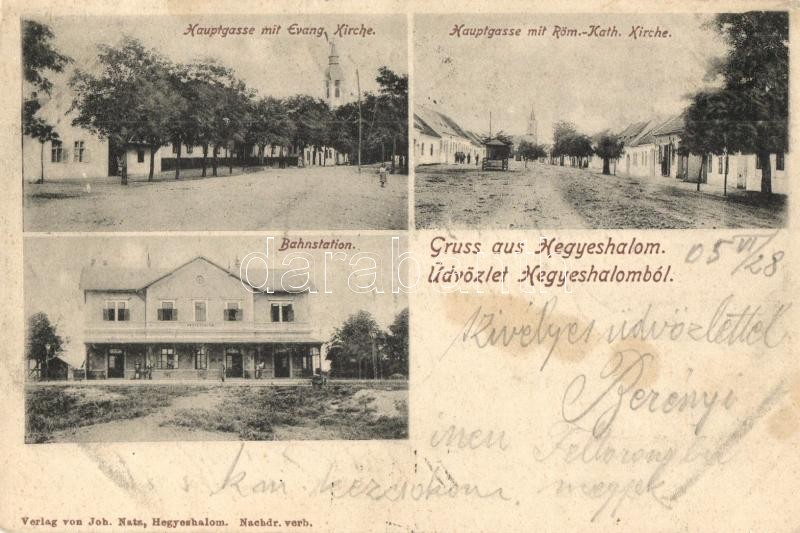 Hauptgasse mit Evang. Kirche.
Hauptgasse mit Röm.-Kath. Kirche.
Bahnstation.
Gruss aus Hegyeshalom.
Üdvözlet Hegyeshalomból.
darabanth
05 VI/28
Szivélyes üdvözlettel
Berényi
innen
megyek
Verlag von Joh. Natz, Hegyeshalom. Nachdr. verb.